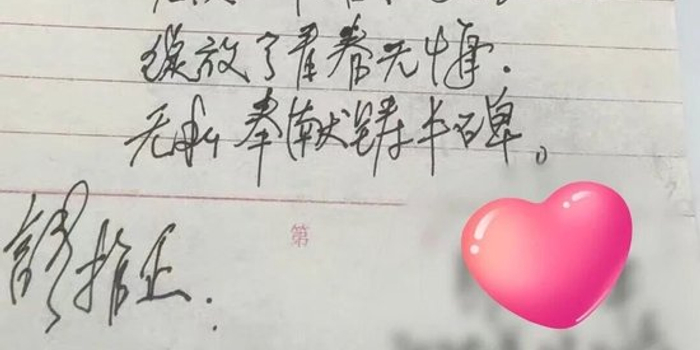 绽放了青春无悔.
无私奉献铸丰碑。
第
请指正.